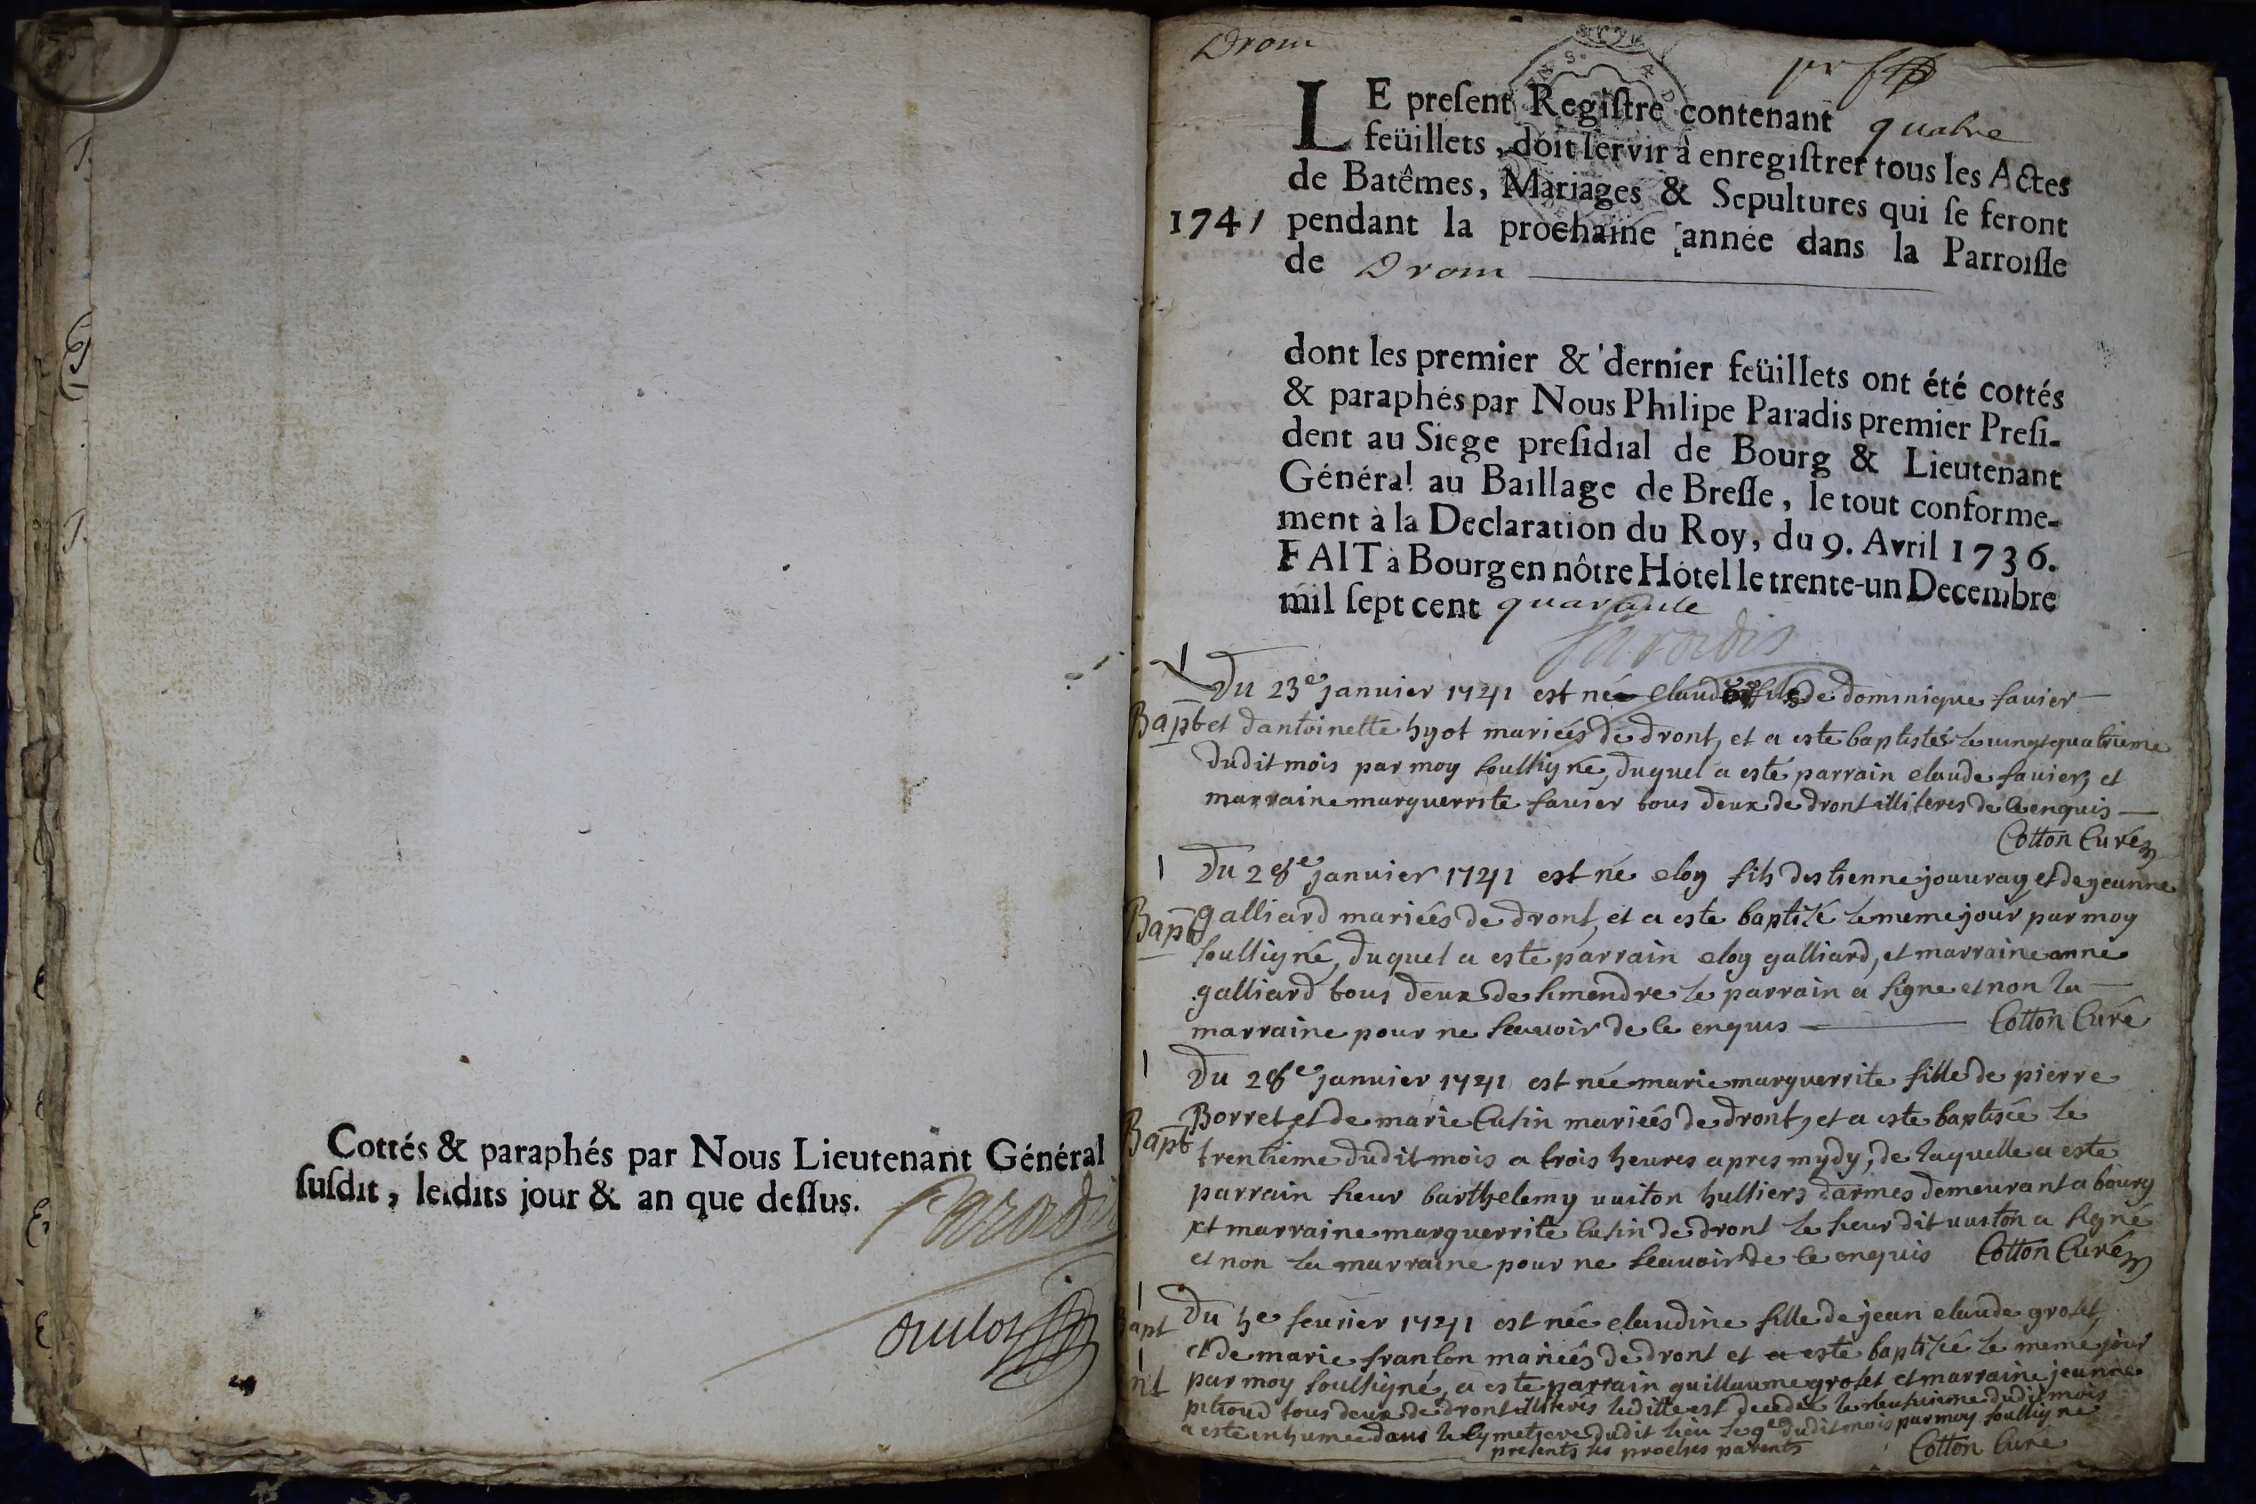 Cottés & paraphés par Nous Lieutenant Général
susdit, lesdits jour & an que dessus.
Paradis
Drom
LE present Registre contenant quatre
feüillets, doit servir à enregistrer tous les Actes
de Batêmes, Mariages & Sepultures qui se feront
1741 pendant la prochaine année dans la Parroisse
de Drom
dont les premier & dernier feüillets ont été cottés
& paraphés par Nous Philipe Paradis premier Presi-
dent au Siege presidial de Bourg & Lieutenant
Général au Baillage de Bresse, le tout conforme-
ment à la Declaration du Roy, du 9. Avril 1736.
FAIT à Bourg en nôtre Hôtel le trente-un Decembre
mil sept cent quarante
Paradis
1
Du 23e janvier 1741 est né claude fils de dominique favier
Bapt et dantoinette hyot mariés de dront, et a este baptisté le vingtquatrieme
dudit mois par moy soussigné, duquel a esté parrain claude favier, et
marraine marguerrite favier tous deux de dront illiteres de ce enquis
Cotton Curé
1 Du 28e janvier 1741 est né eloy fils destienne jouvray et de jeanne
Bapt galliard mariés de dront, et a este baptizé le meme jour par moy
soussigné, duquel a este parrain eloy galliard, et marraine anne
galliard tous deux de simandre le parrain a signe et non la
marraine pour ne scavoir de ce enquis Cotton Curé
1 Du 28e janvier 1741 est née marie marguerrite fille de pierre
Bapt Borret et de marie Cusin mariés de dront, et a este baptisée le
trentieme dudit mois a trois heures apres mydy, de laquelle a este
parrain sieur barthelemy vuiton hussiers darmes demeurant a bourg
et marraine marguerrite Cusin de dront le sieur dit vuiton a signé
et non la marraine pour ne scavoir de ce enquis Cotton Curé
1
Bapt Du 5e fevrier 1741 est née claudine fille de jean claude groset
1 et de marie franson mariés de dront et a este baptizée le meme jour
par moy soussigné, a este parrain guillaume groset et marraine jeanne
tous deux de dront illiterés ladite est decedee le dudit mois
a este inhumée dans le cymetiere dudit lieu le 9e dudit mois par moy soussigné
presents les proches parents Cotton Curé